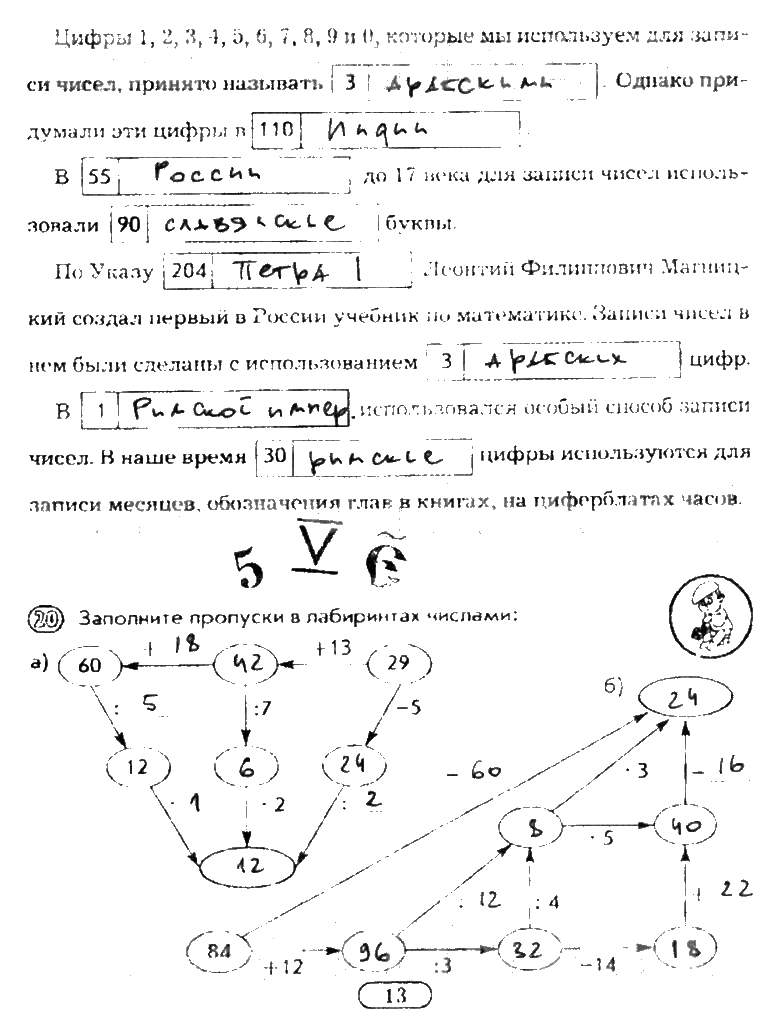 Цифры 1, 2, 3, 4, 5, 6, 7, 8, 9 и 0, которые мы используем для запи-
си чисел, принято называть 3 арабскими. Однако при-
думали эти цифры в 110 Индии.
В 55 России до 17 века для записи чисел исполь-
зовали 90 славянские буквы.
По Указу 204 Петра I Леонтий Филиппович Магниц-
кий создал первый в России учебник по математике. Записи чисел в
нем были сделаны с использованием 3 арабских цифр.
В 1 Римской импер. использовался особый способ записи
чисел. В наше время 30 римские цифры используются для
записи месяцев, обозначения глав в книгах, на циферблатах часов.
5 V Є
20 Заполните пропуски в лабиринтах числами:
а) 60 + 18 42 +13 29
: 5 :7 -5
12 6 24
· 1 · 2 : 2
12
б) 24
- 60 · 3 - 16
8 · 5 40
: 12 : 4 + 22
84 +12 96 :3 32 -14 18
13